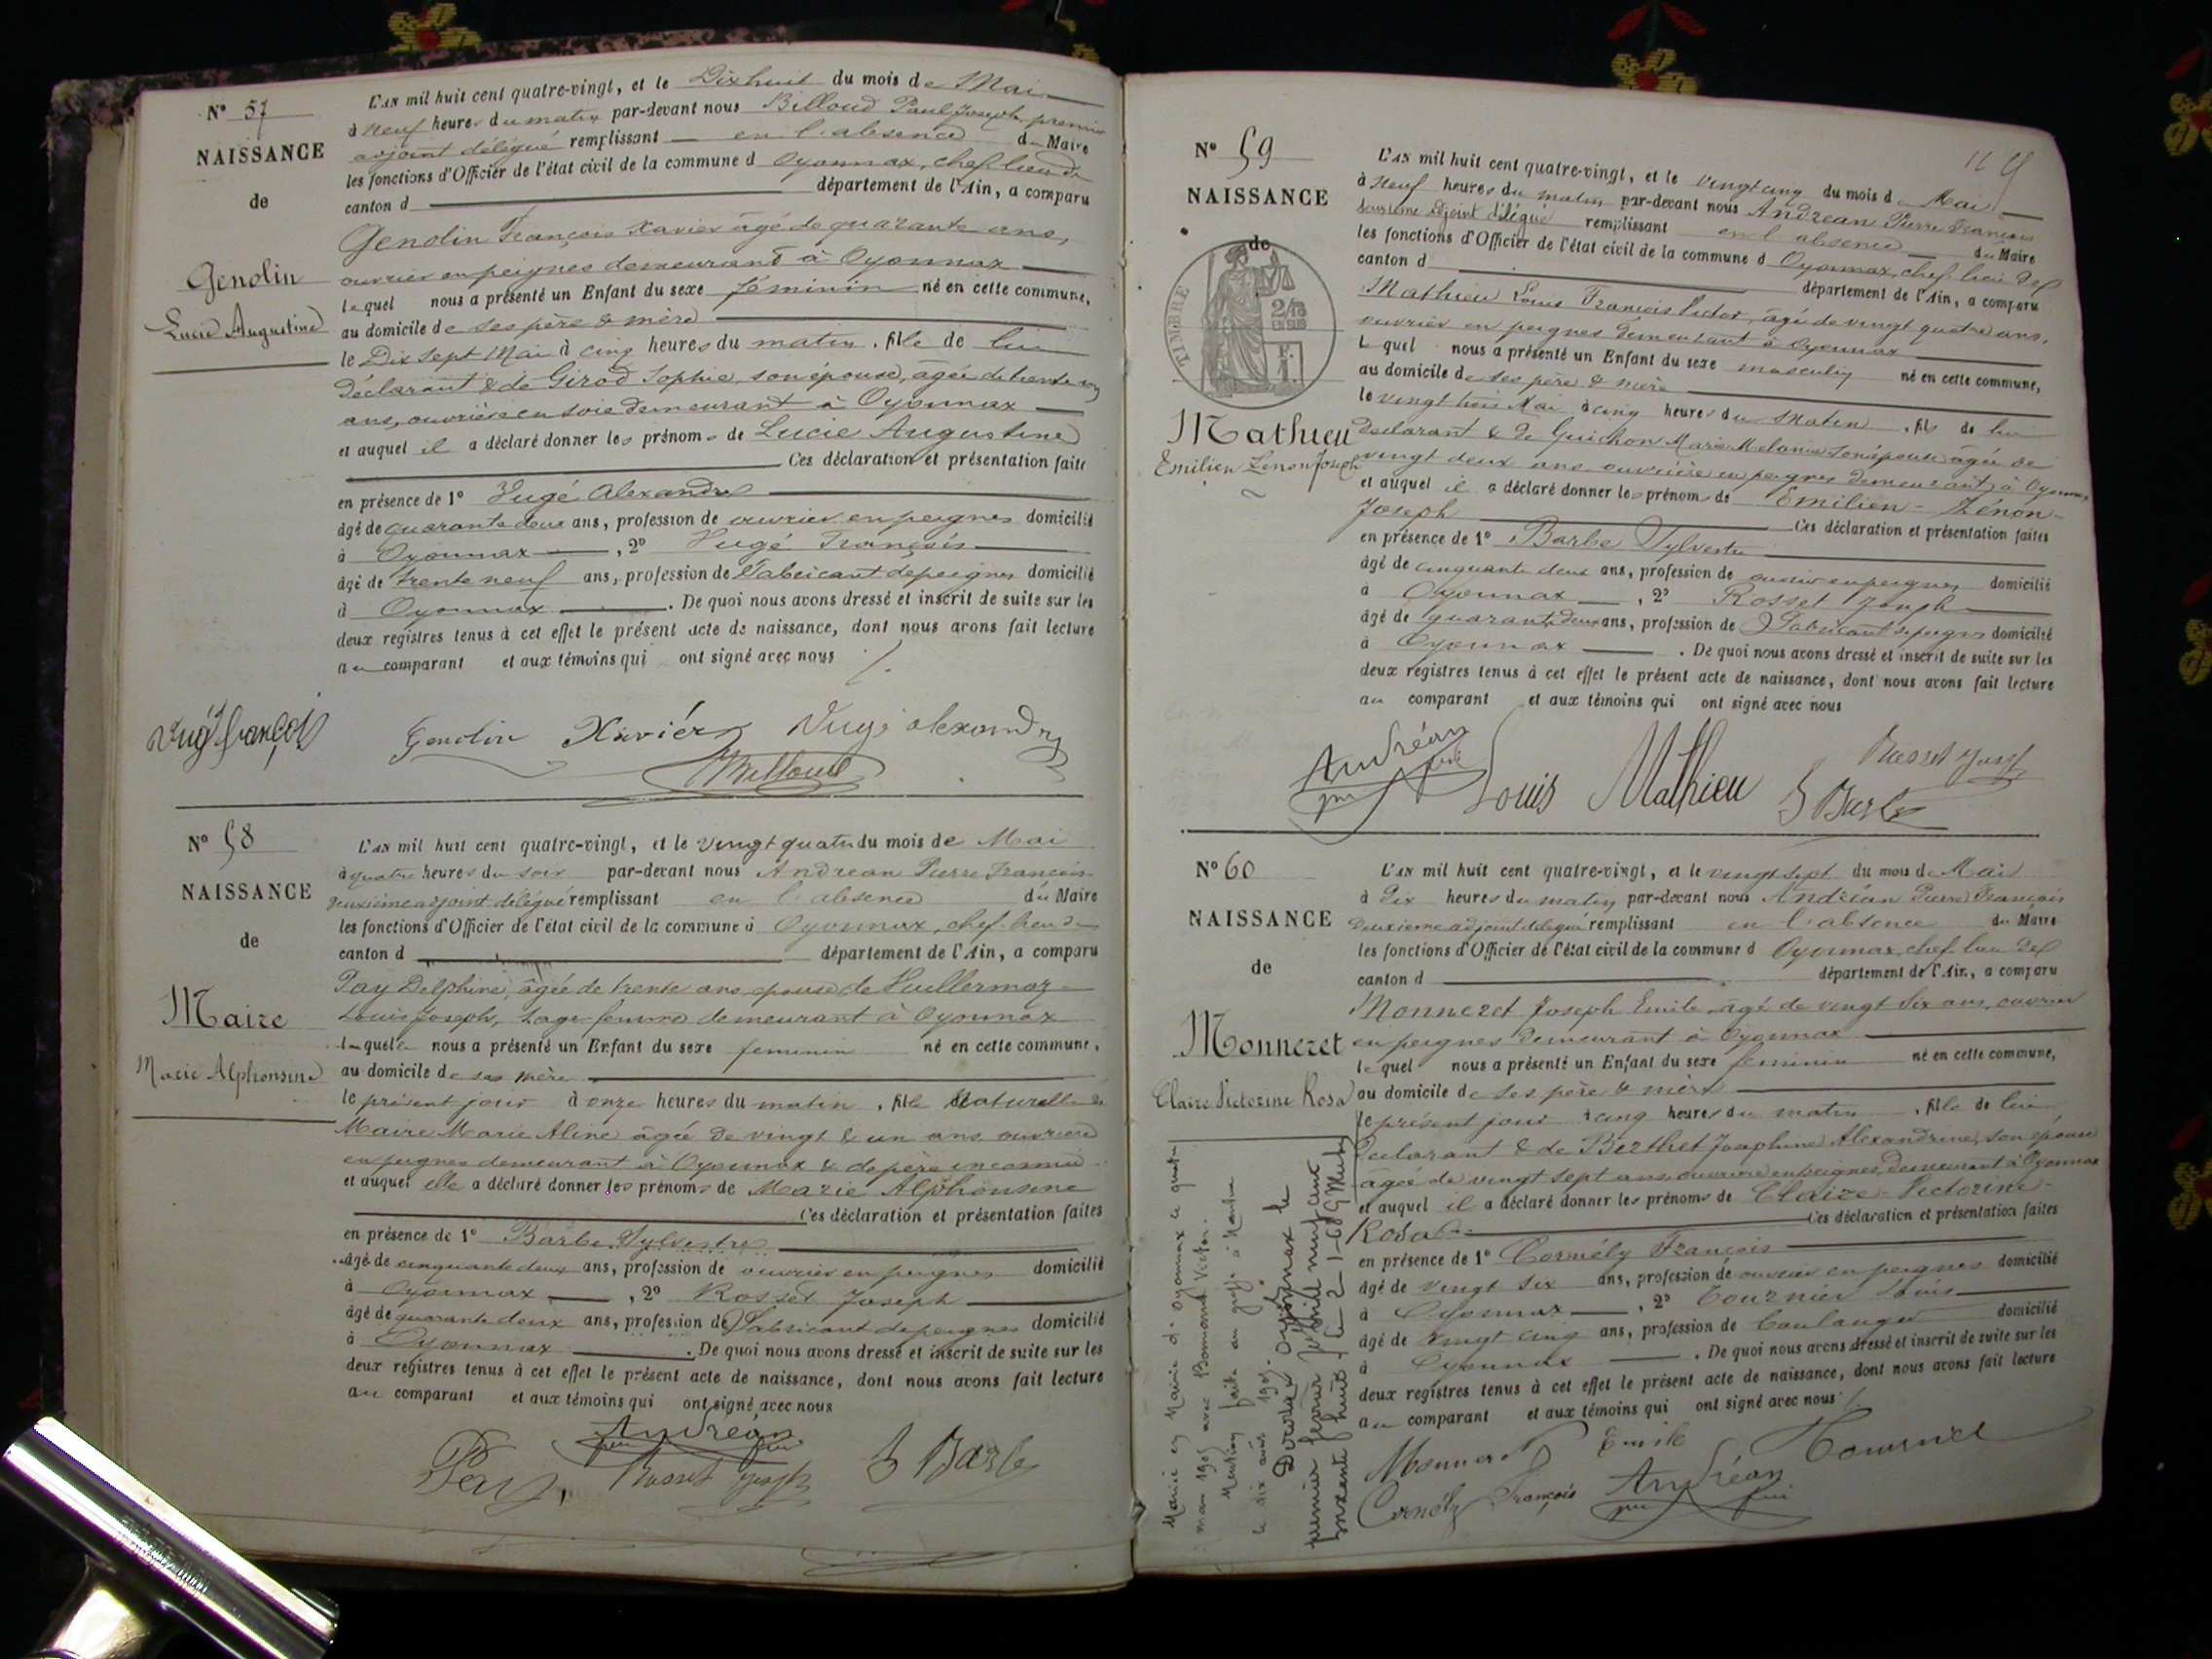 N° 57
NAISSANCE
de
Genolin
Lucie Augustine
L'AN mil huit cent quatre-vingt, et le Dix huit du mois de Mai
à neuf heures du matin par-devant nous Billoud Paul Joseph premier
adjoint délégué remplissant en l'absence du Maire
les fonctions d'Officier de l'état civil de la commune d Oyonnax, chef lieu de
canton d département de l'Ain, a comparu
Genolin François Xavier âgé de quarante ans,
ouvrier en peignes demeurant à Oyonnax
lequel nous a présenté un Enfant du sexe féminin né en cette commune,
au domicile de ses père & mère
le Dix sept Mai à cinq heures du matin, fille de lui
Déclarant & de Girod Sophie, son épouse, âgée de trente
ans, ouvrière en soie demeurant à Oyonnax
et auquel il a déclaré donner les prénoms de Lucie Augustine
Ces déclaration et présentation faite
en présence de 1° Vugé Alexandre
âgé de quarante deux ans, profession de ouvrier en peignes domicilié
à Oyonnax, 2° Vugé François
âgé de trente neuf ans, profession de Fabricant de peignes domicilié
à Oyonnax. De quoi nous avons dressé et inscrit de suite sur les
deux registres tenus à cet effet le présent acte de naissance, dont nous avons fait lecture
au comparant et aux témoins qui ont signé avec nous
Vugé françois Genolin Xavier Vugé alexandre
Billoud
N° 58
NAISSANCE
de
Maire
Marie Alphonsine
L'AN mil huit cent quatre-vingt, et le vingt quatre du mois de Mai
à quatre heures du soir par-devant nous Andréan Pierre François
deuxième adjoint délégué remplissant en l'absence du Maire
les fonctions d'Officier de l'état civil de la commune d Oyonnax, chef-lieu de
canton d département de l'Ain, a comparu
Pay Delphine, âgée de trente ans épouse de Vuillermoz
Louis Joseph, sage-femme demeurant à Oyonnax
laquelle nous a présenté un Enfant du sexe feminin né en cette commune,
au domicile de sa mère
le présent jour à onze heures du matin, fille Naturelle de
Maire Marie Aline âgée de vingt & un ans ouvrière
en peignes demeurant à Oyonnax & de père inconnu
et auquel elle a déclaré donner les prénoms de Marie Alphonsine
Ces déclaration et présentation faites
en présence de 1° Barbe Sylvestre
âgé de cinquante deux ans, profession de ouvrier en peignes domicilié
à Oyonnax, 2° Rosset Joseph
âgé de quarante deux ans, profession de Fabricant de peignes domicilié
à Oyonnax. De quoi nous avons dressé et inscrit de suite sur les
deux registres tenus à cet effet le présent acte de naissance, dont nous avons fait lecture
au comparant et aux témoins qui ont signé avec nous
Andréan
Pay, Rosset Joseph S Barbe
N° 59
NAISSANCE
de
TIMBRE
2/10
EN SUS
Mathieu
Emilien Zenon Joseph
L'AN mil huit cent quatre-vingt, et le vingt cinq du mois d Mai
à neuf heures du matin par-devant nous Andréan Pierre François
deuxième adjoint délégué remplissant en l'absence du Maire
les fonctions d'Officier de l'état civil de la commune d Oyonnax, chef lieu de
canton d département de l'Ain, a comparu
Mathieu Louis François Victor, âgé de vingt quatre ans,
ouvrier en peignes demeurant à Oyonnax
Lequel nous a présenté un Enfant du sexe masculin né en cette commune,
au domicile de ses père & mère
le vingt trois Mai à cinq heures du Matin, fils de lui
Déclarant & de Guichon Marie Melanie son épouse âgée de
vingt deux ans ouvrière en peignes demeurant à Oyonnax
et auquel il a déclaré donner les prénoms de Emilien - Zénon-
Joseph Ces déclaration et présentation faites
en présence de 1° Barbe Sylvestre
âgé de cinquante deux ans, profession de ouvrier en peignes domicilié
à Oyonnax, 2° Rosset Joseph
âgé de quarante deux ans, profession de Fabricant de peignes domicilié
à Oyonnax. De quoi nous avons dressé et inscrit de suite sur les
deux registres tenus à cet effet le présent acte de naissance, dont nous avons fait lecture
au comparant et aux témoins qui ont signé avec nous
Andréan Louis Mathieu Rosset Josph
S Barbe
N° 60
NAISSANCE
de
Monneret
Claire Victorine Rosa
L'AN mil huit cent quatre-vingt, et le vingt sept du mois de Mai
à Dix heures du matin par-devant nous Andréan Pierre François
deuxième adjoint délégué remplissant en l'absence du Maire
les fonctions d'Officier de l'état civil de la commune d Oyonnax, chef lieu de
canton d département de l'Ain, a comparu
Monneret Joseph Emile, âgé de vingt six ans, ouvrier
en peignes demeurant à Oyonnax
lequel nous a présenté un Enfant du sexe feminin né en cette commune,
au domicile de ses père & mère
le présent jour à cinq heures du matin, fille de lui
Déclarant & de Berthet Josephine Alexandrine, son épouse
âgée de vingt sept ans, ouvrière en peignes, demeurant à Oyonnax
et auquel il a déclaré donner les prénoms de Claire-Victorine-
Rosa Ces déclaration et présentation faites
en présence de 1° Cornély François
âgé de vingt six ans, profession de ouvrier en peignes domicilié
à Oyonnax, 2° Tournier Louis
âgé de vingt cinq ans, profession de boulanger domicilié
à Oyonnax. De quoi nous avons dressé et inscrit de suite sur les
deux registres tenus à cet effet le présent acte de naissance, dont nous avons fait lecture
au comparant et aux témoins qui ont signé avec nous
Monneret Emile Tournier
Cornély François Andréan
Mariée en Mairie d'Oyonnax le quatre
mars 1905 avec Bonmond Victor.
Mention faite au greffe à Nantua
le dix août 1905.
Décédée Oyonnax le
premier février mil neuf cent
soixante huit. le 2-1-68